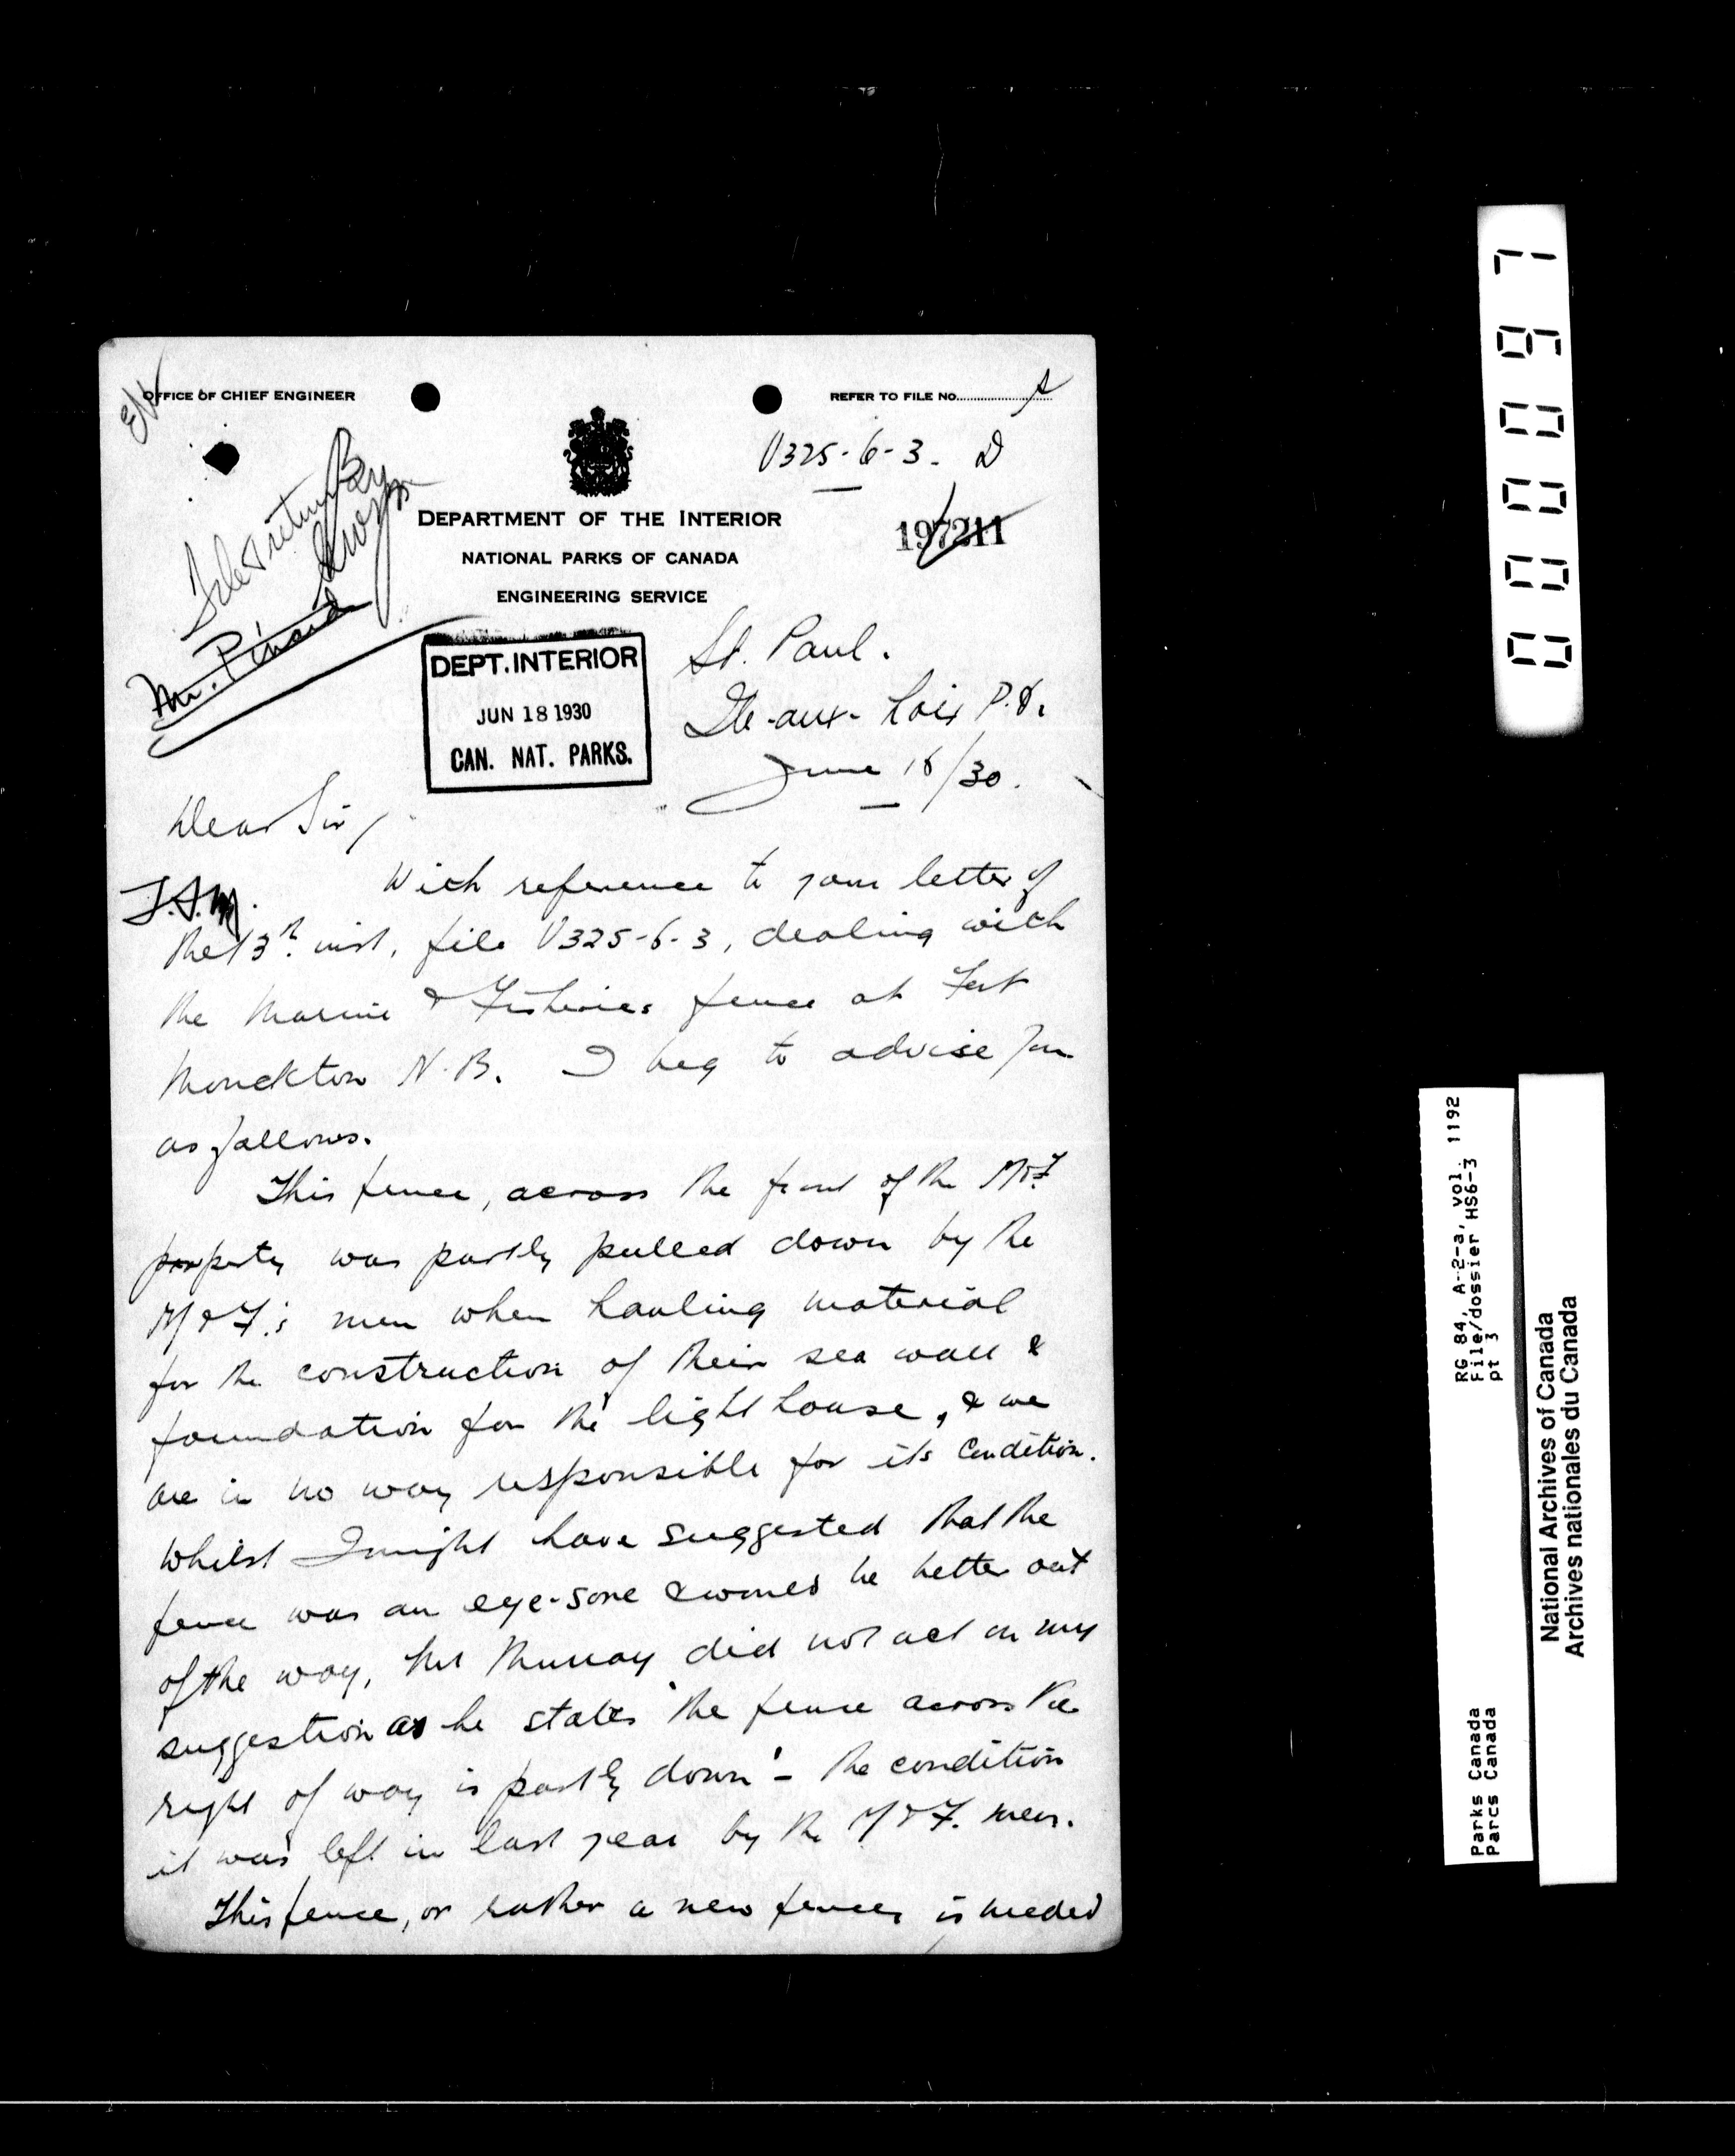 OFFICE OF CHIEF ENGINEER
REFER TO FILE NO.
V325-6-3. D
DEPARTMENT OF THE INTERIOR
NATIONAL PARKS OF CANADA
ENGINEERING SERVICE
197211
Mr. Pinard
DEPT. INTERIOR
JUN 18 1930
CAN. NAT. PARKS.
St. Paul.
Ile-aux-Noix P.Q.
June 16/30.
Dear Sir,
J.S.M.
With reference to your letter of
the 13th. inst, file V325-6-3, dealing with
the Marine & Fisheries fence at Fort
Monckton N.B. I beg to advise you
as follows.
This fence, across the front of the M&F.
property was partly pulled down by the
M&F.'s men when hauling material
for the construction of their sea wall &
foundation for the light house, & we
are in no way responsible for its condition.
Whilst I might have suggested that the
fence was an eye-sore & would be better out
of the way, Mr Murray did not act on my
suggestion as he states "the fence across the
right of way is partly down" - the condition
it was left in last year by the M&F. men.
This fence, or rather a new fence, is needed
0000097
RG 84, A-2-a, vol. 1192
File/dossier HS6-3
pt 3
Parks Canada
Parcs Canada
National Archives of Canada
Archives nationales du Canada